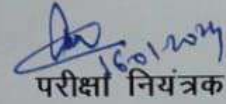 16.01.2024
परीक्षा नियंत्रक